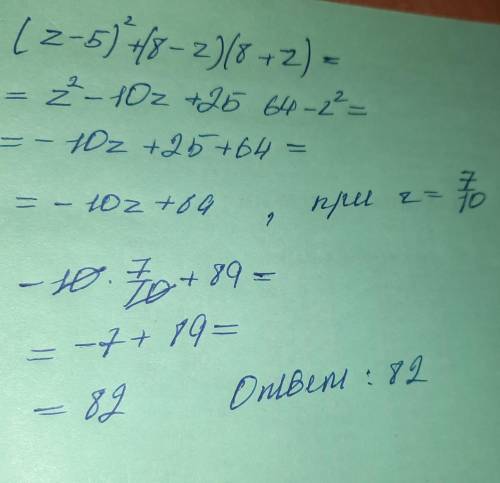 (z-5)²+(8-z)(8+z)=
= z²-10z+25 64-z²=
= -10z+25+64=
= -10z+69, при z= 7/10
-10 · 7/10 + 89=
= -7+89=
= 82 Ответ: 82